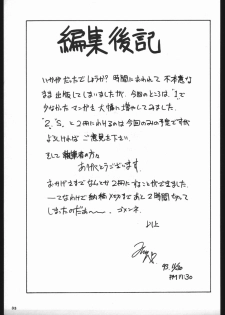 編集後記
いかがだったでしょうか? 時間におわれて 不本意な
まま 出版してしまいましたが、今回のところは、「」で
少なかった マンガを 大幅に 増やしてみました。
2冊にわけるのは 今回のみの予定ですが
よろしければ ご意見を下さい。
そして 執筆者の方々
ありがとうございます。
おかげさまで なんとか 2冊に することができました。
―てなわけで 納稿〆切まで あと 2時間 もって
しまったのだぁ〜〜。ゴメンネ
以上
93.